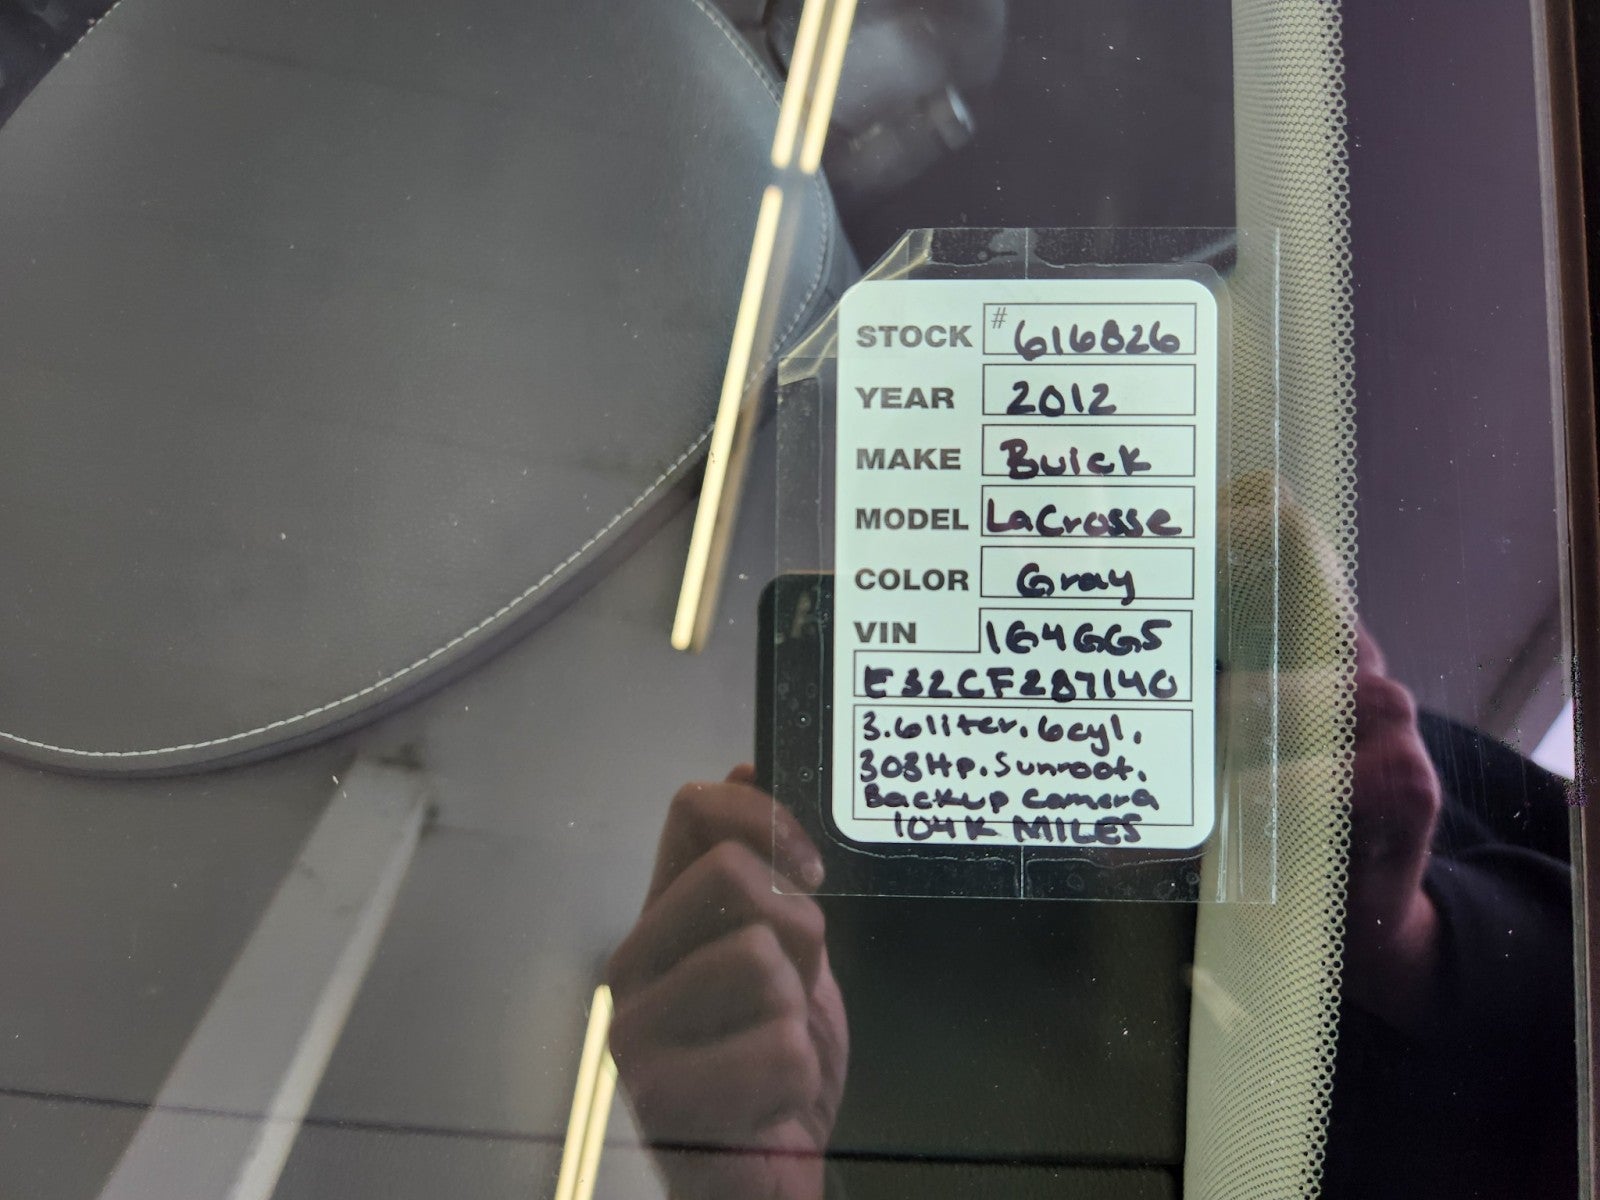 STOCK # 616826
YEAR 2012
MAKE Buick
MODEL LaCrosse
COLOR Gray
VIN 1G4GG5
E32CF287140
3.6 liter. 6cyl.
303Hp. Sunroof.
Backup Camera
104K MILES